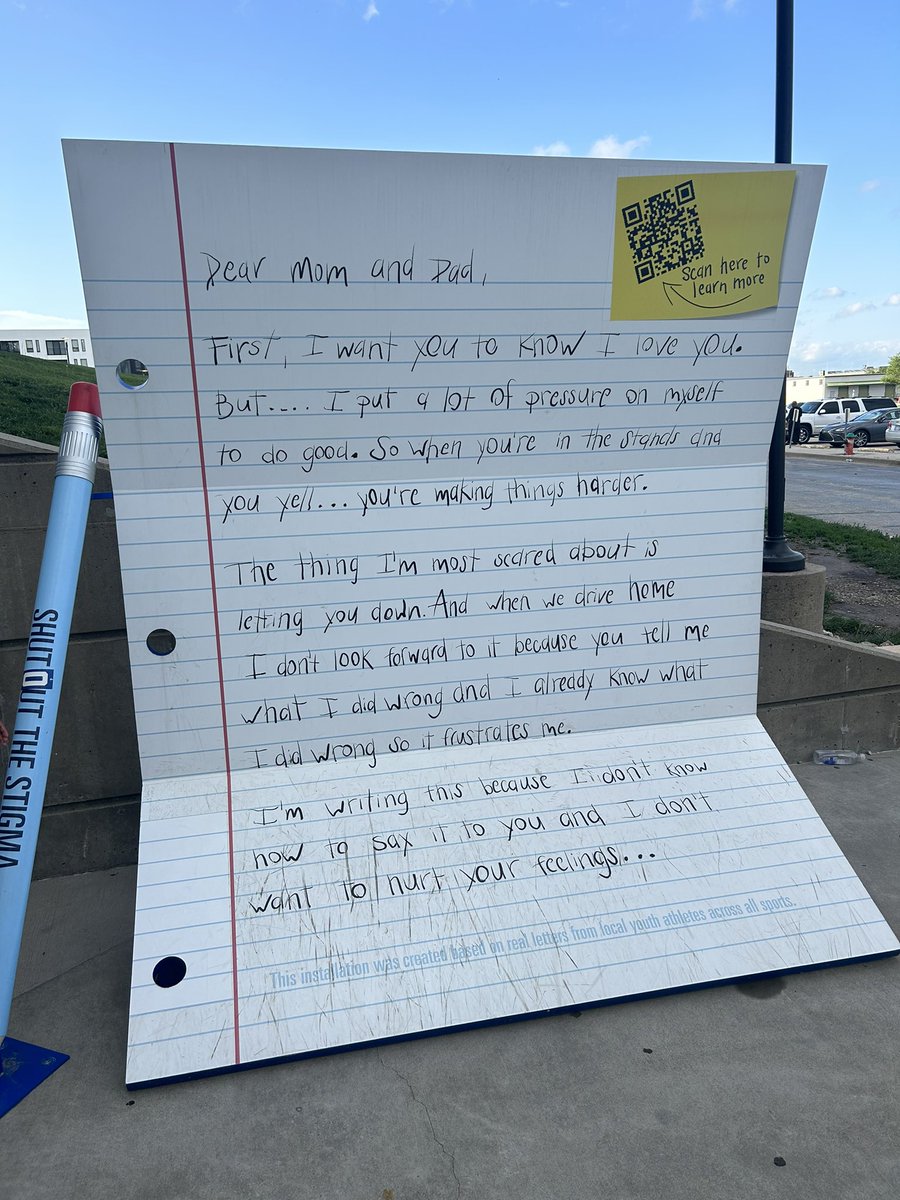 Dear Mom and Dad,
Scan here to
learn more
First, I want you to know I love you.
But.... I put a lot of pressure on myself
to do good. So when you're in the stands and
you yell... you're making things harder.
The thing I'm most scared about is
letting you down. And when we drive home
I don't look forward to it because you tell me
what I did wrong and I already know what
I did wrong so it frustrates me.
I'm writing this because I don't know
how to say it to you and I don't
want to hurt your feelings...
This installation was created based on real letters from local youth athletes across all sports.
SHUTOUT THE STIGMA